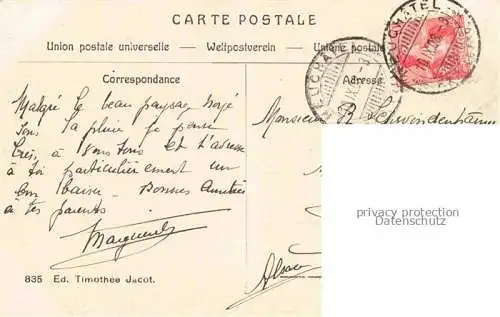 CARTE POSTALE
Union postale universelle — Weltpostverein — Unione postale
NEUCHATEL
NEUCHATEL
Correspondance
Adresse
Malgré le beau paysage noyé
sous la pluie je pense
très à vous tous et t'adresse
à toi particulièrement un
bon baiser. Bonnes Amitiés
à tes parents
Marguerite
Monsieur R. Schwindenhamm
Alsace
privacy protection
Datenschutz
835 Ed. Timothée Jacot.